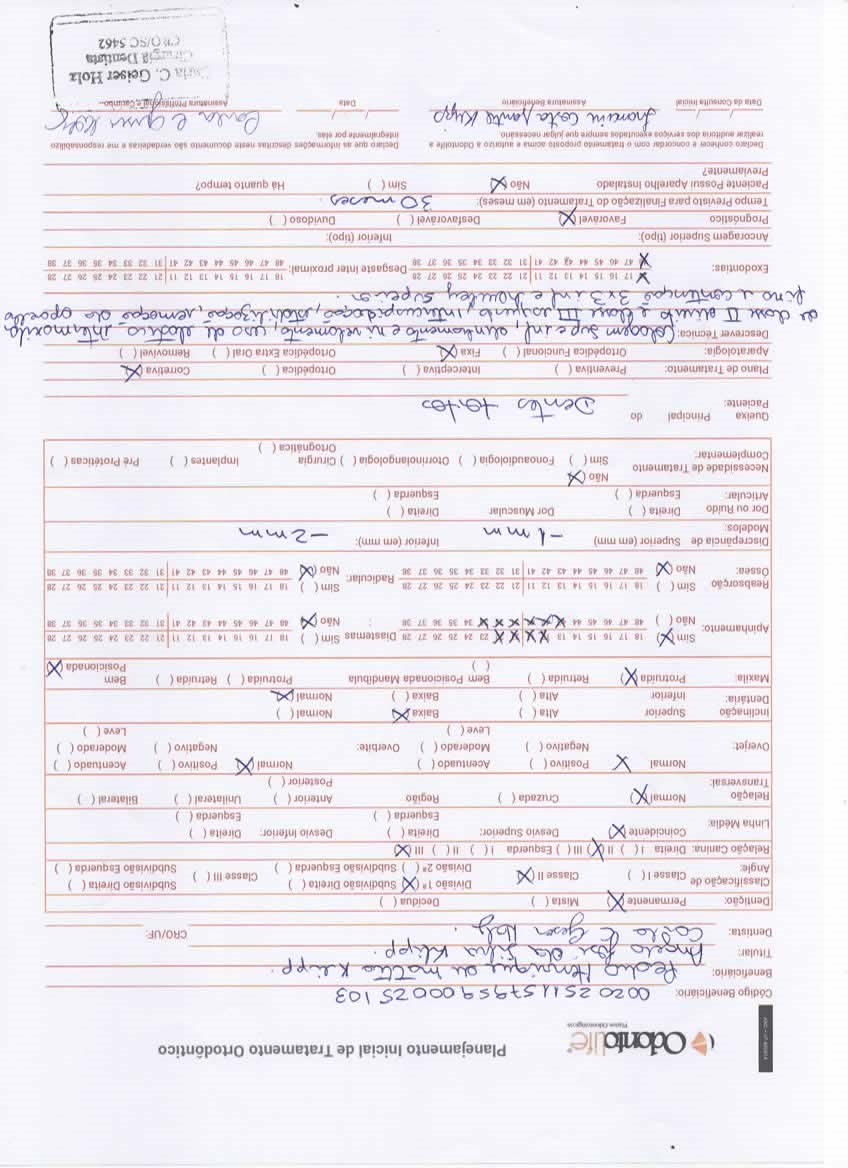 OdontoLife
Planos Odontológicos
Planejamento Inicial de Tratamento Ortodôntico
Código Beneficiário: 0020 25115795900025103
Beneficiário: Pedro Henrique de Mattia Klipp.
Titular: Angelo José da Silva Klipp.
Dentista: Carla C Geiser Holz. CRO/UF:
Dentição: Permanente (X) Mista ( ) Decídua ( )
Classificação de Angle: Classe I ( ) Classe II (X) Divisão 1ª (X) Subdivisão Direita ( ) Classe III ( ) Subdivisão Direita ( )
Divisão 2ª ( ) Subdivisão Esquerda ( ) Subdivisão Esquerda ( )
Relação Canina: Direita I ( ) II (X) III ( ) Esquerda I ( ) II ( ) III (X)
Linha Média: Coincidente (X) Desvio Superior: Direita ( ) Desvio Inferior: Direita ( )
Esquerda ( ) Esquerda ( )
Relação Transversal: Normal (X) Cruzada ( ) Região Anterior ( ) Unilateral ( ) Bilateral ( )
Posterior ( )
Overjet: Normal X Positivo ( ) Acentuado ( ) Overbite: Normal (X) Positivo ( ) Acentuado ( )
Negativo ( ) Moderado ( ) Negativo ( ) Moderado ( )
Leve ( ) Leve ( )
Inclinação Dentária: Superior Alta ( ) Baixa (X) Normal ( )
Inferior Alta ( ) Baixa ( ) Normal (X)
Maxila: Protruida (X) Retruida ( ) Bem Posicionada ( ) Mandíbula Protruida ( ) Retruida ( ) Bem Posicionada (X)
Apinhamento: Sim (X) 18 17 16 15 14 13 12 11 21 22 23 24 25 26 27 28 Diastemas Sim ( ) 18 17 16 15 14 13 12 11 21 22 23 24 25 26 27 28
Não ( ) 48 47 46 45 44 43 42 41 31 32 33 34 35 36 37 38 : Não (X) 48 47 46 45 44 43 42 41 31 32 33 34 35 36 37 38
Reabsorção Óssea: Sim ( ) 18 17 16 15 14 13 12 11 21 22 23 24 25 26 27 28 Radicular: Sim ( ) 18 17 16 15 14 13 12 11 21 22 23 24 25 26 27 28
Não (X) 48 47 46 45 44 43 42 41 31 32 33 34 35 36 37 38 Não (X) 48 47 46 45 44 43 42 41 31 32 33 34 35 36 37 38
Discrepância de Modelos: Superior (em mm) -1 mm Inferior (em mm): -2 mm
Dor ou Ruído Articular: Direita ( ) Dor Muscular Direita ( )
Esquerda ( ) Esquerda ( )
Necessidade de Tratamento Complementar: Não (X)
Sim ( ) Fonoaudiologia ( ) Otorrinolangologia ( ) Cirurgia Ortognática ( ) Implantes ( ) Pré Protéticas ( )
Queixa Principal do Paciente: Dentes tortos
Plano de Tratamento: Preventiva ( ) Interceptiva ( ) Ortopédica ( ) Corretiva (X)
Aparatologia: Ortopédica Funcional ( ) Fixa (X) Ortopédica Extra Oral ( ) Removível ( )
Descrever Técnica: Colagem sup e inf, alinhamento e nivelamento, uso de elástico intermaxila
de classe II direito e classe III esquerdo, intercuspidação, estabilização, remoção do aparelho
fixo e contenção 3x3 inf e hawley superior.
Exodontias: 18 17 16 15 14 13 12 11 21 22 23 24 25 26 27 28 Desgaste Inter proximal: 18 17 16 15 14 13 12 11 21 22 23 24 25 26 27 28
48 47 46 45 44 43 42 41 31 32 33 34 35 36 37 38 48 47 46 45 44 43 42 41 31 32 33 34 35 36 37 38
Ancoragem Superior (tipo): Inferior (tipo):
Prognóstico Favorável (X) Desfavorável ( ) Duvidoso ( )
Tempo Previsto para Finalização do Tratamento (em meses): 30 meses.
Paciente Possui Aparelho Instalado Previamente? Não (X) Sim ( ) Há quanto tempo?
Declaro conhecer e concordar com o tratamento proposto acima e autorizo a Odontolife a
realizar auditoria dos serviços executados sempre que julgar necessário.
Declaro que as informações descritas neste documento são verdadeiras e me responsabilizo
integralmente por elas.
Data da Consulta Inicial Assinatura Beneficiário Data Assinatura Profissional e Carimbo
Carla C. Geiser Holz
Cirurgiã Dentista
CRO/SC 5462